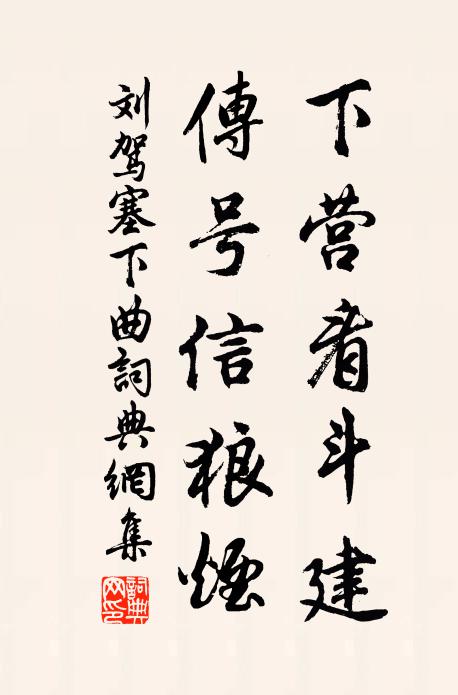 下营看斗建
傳号信狼煙
刘驾塞下曲詞典網集
詞典网印